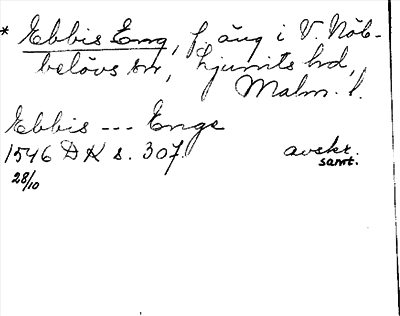 * Ebbis Eng, f. äng i V. Nöb-
belövs sn, Ljunits hd,
Malm. l.
Ebbis --- Enge
1546 DK s. 307. avskr.
samt.
28/10